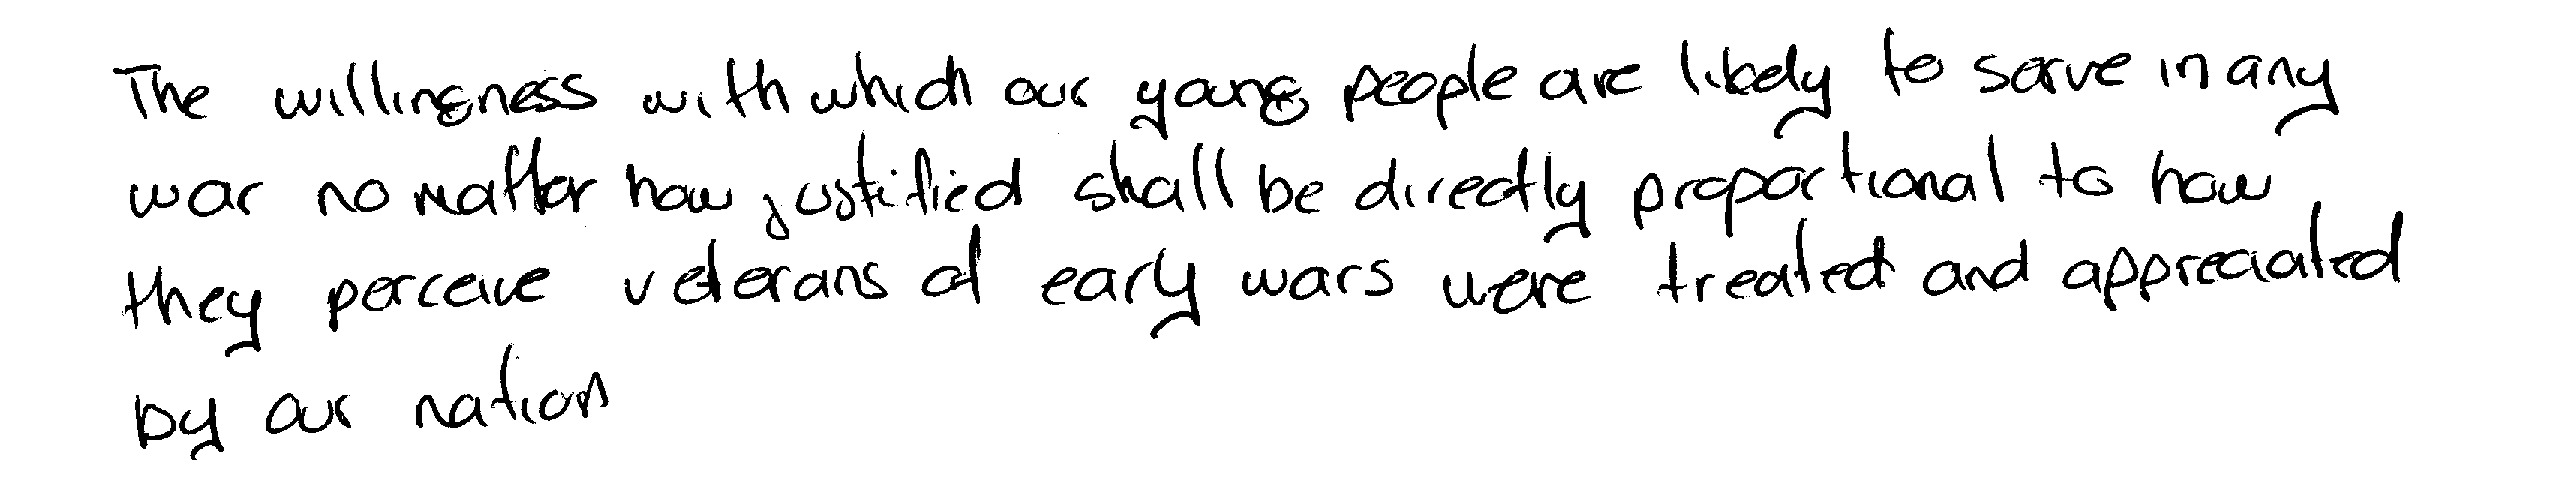 The willingness with which our young people are likely to serve in any
war no matter how justified shall be directly proportional to how
they perceive veterans of early wars were treated and appreciated
by our nation